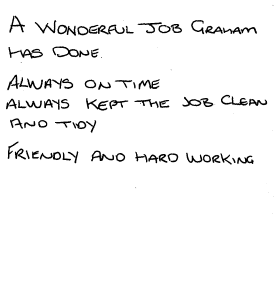 A WONDERFUL JOB GRAHAM
HAS DONE.
ALWAYS ON TIME
ALWAYS KEPT THE JOB CLEAN
AND TIDY
FRIENDLY AND HARD WORKING